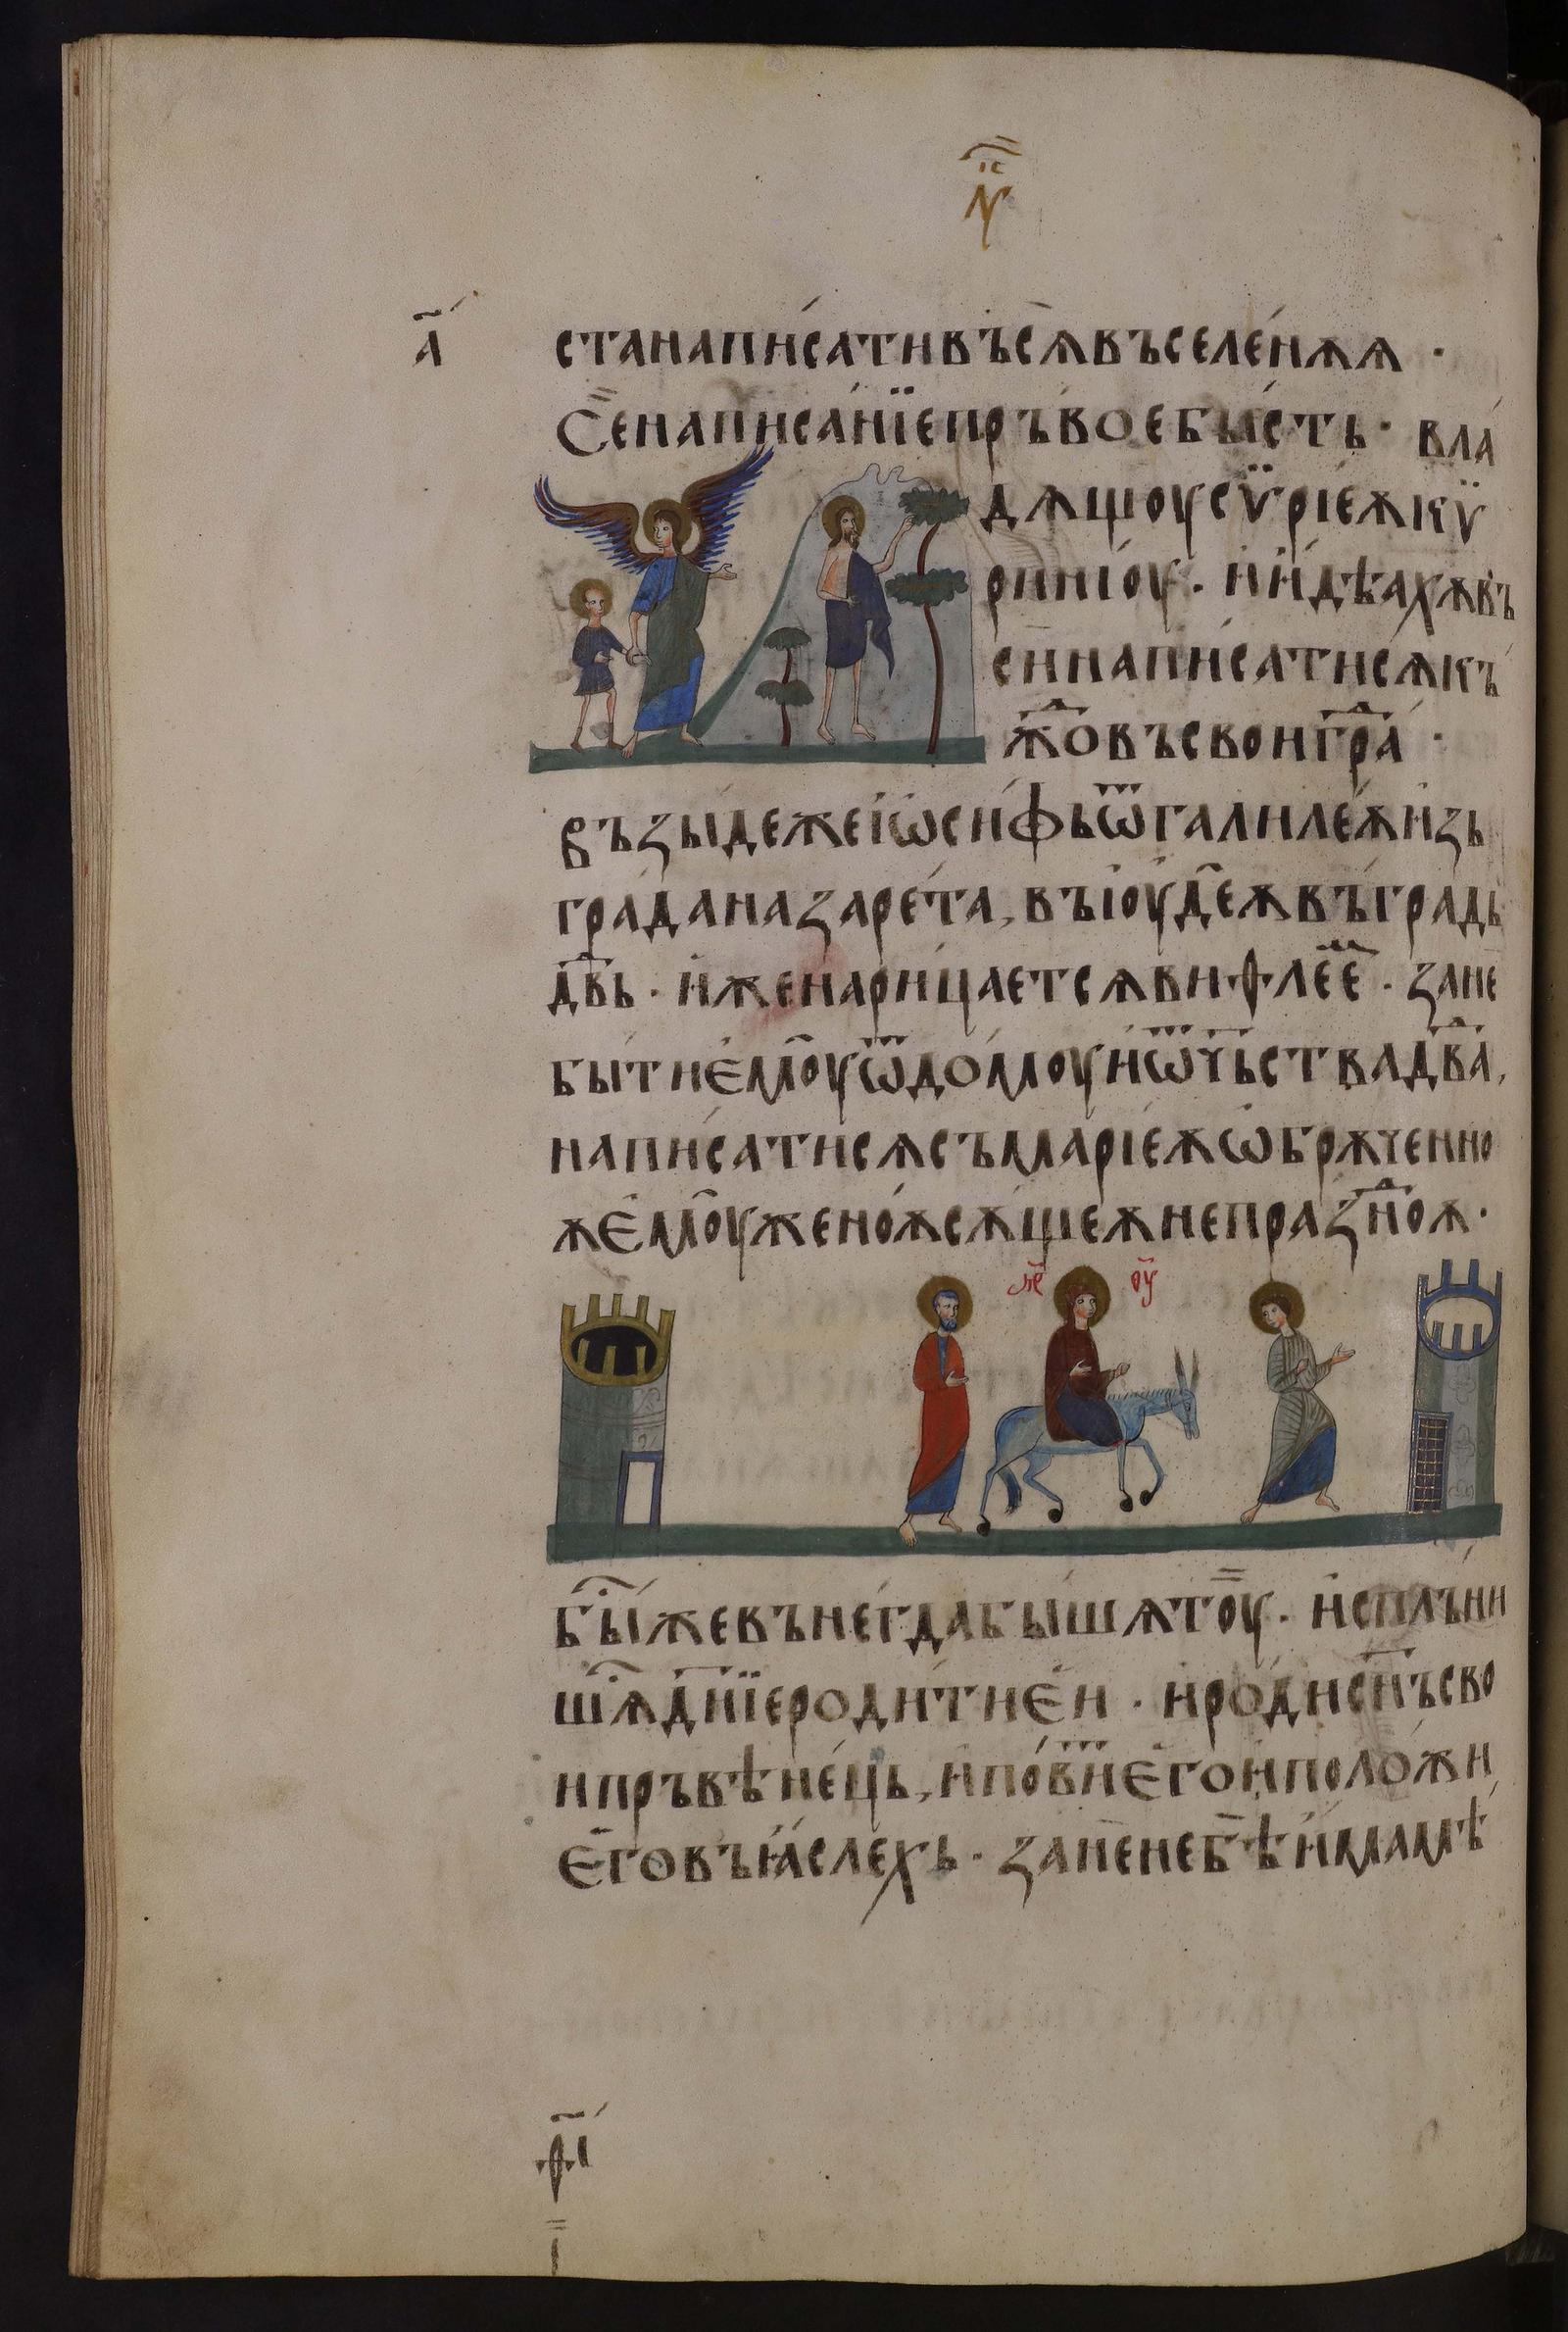 н҃ іс
а҃
станаписативъсѧвъселенѫѧ ·
Сенаписанїепръвоебысть · вла
дѧщоусѵ̈рїеѫкѵ̈
ринїоу · ииидѣахѫвъ
сиинаписатисѧкъ
ждовъсвоиграⷣ ·
възыдежеіѡсифьѿгалилеѫизь
граданазарета, въіоудеѫвъградь
дв҃дь · ижеенарицаетсѧвиѳлеемь · зане
бытиемоуѿдомоуиѿчьствадв҃да,
написатисѧсъмаріеѫѡбрѫченно
ѫемоуженоѫсѫщеѫнепразⷣноѫ ·
м҃р ѳу
бы҃жевънегдабышѧтоу · исплъни
шѧдн҃їеродитиеи · иродисн҃ъсво
ипръвѣнець, иповⷮиегоиположи
еговъꙗслехь · заненебѣимамѣ
ѳ҃і
і